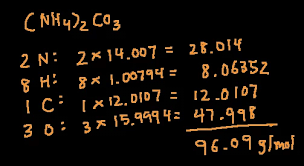 (NH4)2CO3
2 N: 2×14.007 = 28.014
8 H: 8×1.00794 = 8.06352
1 C: 1×12.0107 = 12.0107
3 O: 3×15.9994 = 47.998
96.09 g/mol